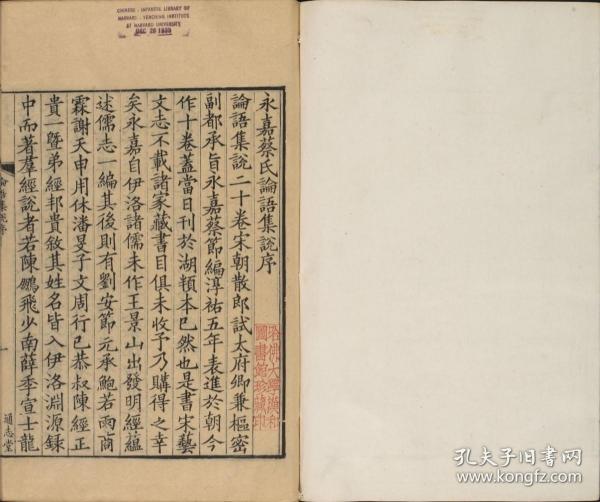 CHINESE-JAPANESE LIBRARY OF
HARVARD-YENCHING INSTITUTE
AT HARVARD UNIVERSITY
DEC 20 1939
永嘉蔡氏論語集說序
論語集說二十卷宋朝散郎試太府卿兼樞密
副都承旨永嘉蔡節編淳祐五年表進於朝今
作十卷蓋當日刊於湖頖本已然也是書宋藝
文志不載諸家藏書目俱未收予乃購得之幸
矣永嘉自伊洛諸儒未作王景山出發明經蘊
述儒志一編其後則有劉安節元承鮑若雨商
霖謝天申用休潘旻子文周行已恭叔陳經正
貴一暨弟經邦貴敘其姓名皆入伊洛淵源錄
中而著羣經說者若陳鵬飛少南薛季宣士龍
通志堂
哈佛大學漢和
圖書館珍藏印
孔夫子旧书网
www.kongfz.com